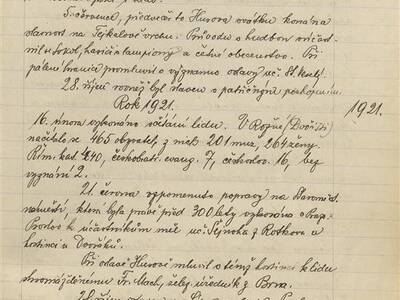 5. července, předvečer to Husova svátku konána
slavnost na Tejkalově vrchu. Průvodu s hudbou účast-
nil se Sokol, hasiči s lampiony a četné obecenstvo. Při
pálení hranice promluvil o významu oslavy uč. St.
28. říjen rovněž byl slaven s patřičným porozuměním.
Rok 1921.
1921.
16. února vykonáno sčítání lidu. V Rožné (Dvořiště)
načítalo se 465 obyvatel, z nich 201 muž, 264 ženy.
Řím. kat. 440, českobratr. evang. 7, českoslov. 16, bez
vyznání 2.
21. června vzpomenuto popravy na Staroměst.
náměstí, která byla právě před 300 lety vykonána v Praze.
Proslov k účastníkům měl uč. Šejnoha z Rotkova v
hostinci u Dvořáků.
Při oslavě Husově mluvil v témž hostinci k lidu
shromážděnému Fr. Mach, želez. úředník z Brna.
28. říjen